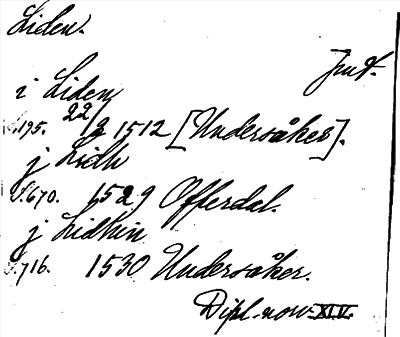 Liden.
Jmt.
i Liden
S. 195. 22/2 1512 [Undersåker].
j Lidh
S. 670. 1529 Offerdal.
j Lidhin
S. 716. 1530 Undersåker.
Dipl. norv. XIV.